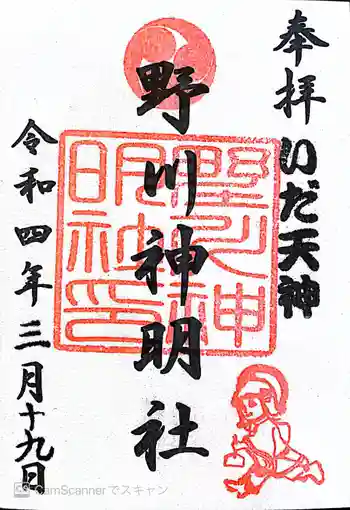 奉拝
いだ天神
野川神明社
令和四年三月十九日
野川神明社印
CamScannerでスキャン